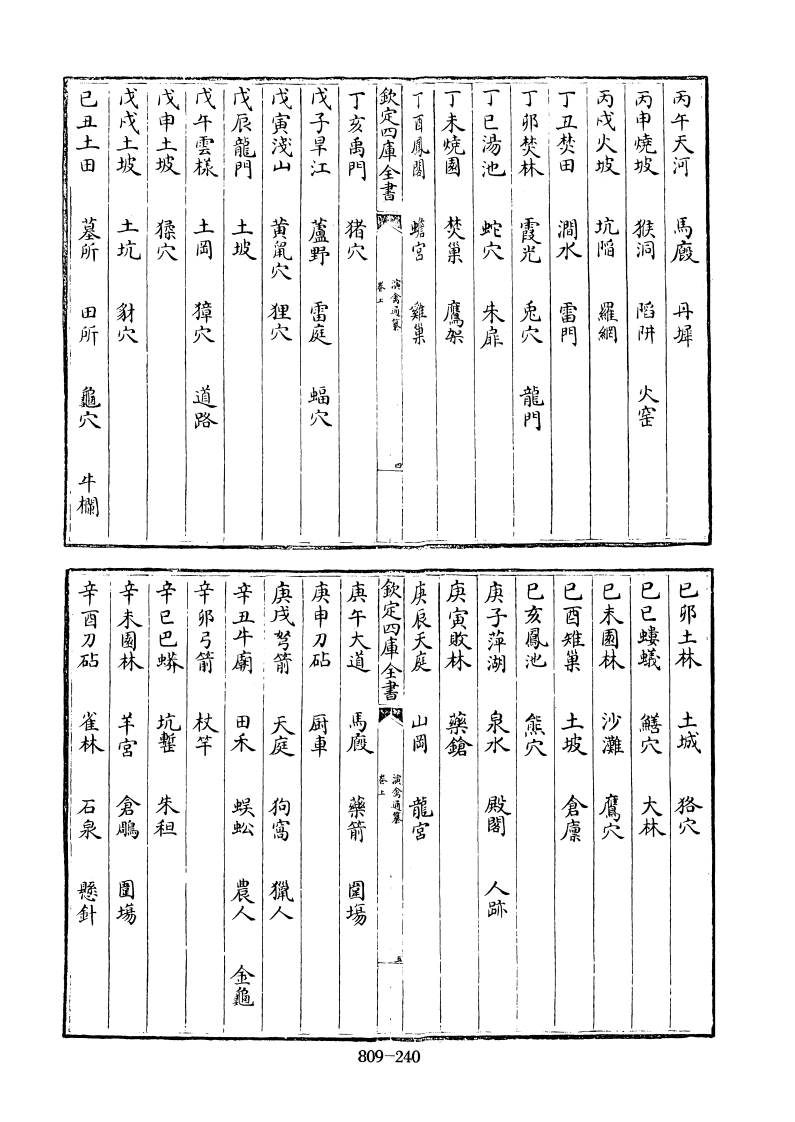 丙午天河 馬廄 丹墀
丙申燒坡 猴洞 䧟阱 火窑
丙戌火坡 坑䧟 羅網
丁丑焚田 澗水 雷門
丁卯焚林 霞光 兎穴 龍門
丁巳湯池 蛇穴 朱扉
丁未燒園 焚巢 鷹架
丁酉鳳閣 蟾宫 雞巢
欽定四庫全書 演禽通纂 卷上 四
丁亥禹門 猪穴
戊子旱江 蘆野 雷庭 蝠穴
戊寅淺山 黄䑕穴 狸穴
戊辰龍門 土坡
戊午雲樣 土岡 獐穴 道路
戊申土坡 猱穴
戊戌土坡 土坑 豺穴
己丑土田 墓所 田所 龜穴 牛欄
己卯土林 土城 狢穴
己巳螻蟻 鱔穴 大林
己未園林 沙灘 鷹穴
己酉雉巢 土坡 倉廪
己亥鳳池 熊穴
庚子萍湖 泉水 殿閣 人跡
庚寅敗林 藥鎗
庚辰天庭 山岡 龍宫
欽定四庫全書 演禽通纂 卷上 五
庚午大道 馬廄 藥箭 圍塲
庚申刀砧 厨車
庚戌弩箭 天庭 狗窩 獵人
辛丑牛廟 田禾 蜈蚣 農人 金龜
辛卯弓箭 杖竿
辛巳巴蟒 坑塹 朱秬
辛未園林 羊宫 倉鵰 圍塲
辛酉刀砧 雀林 石泉 懸針
809-240